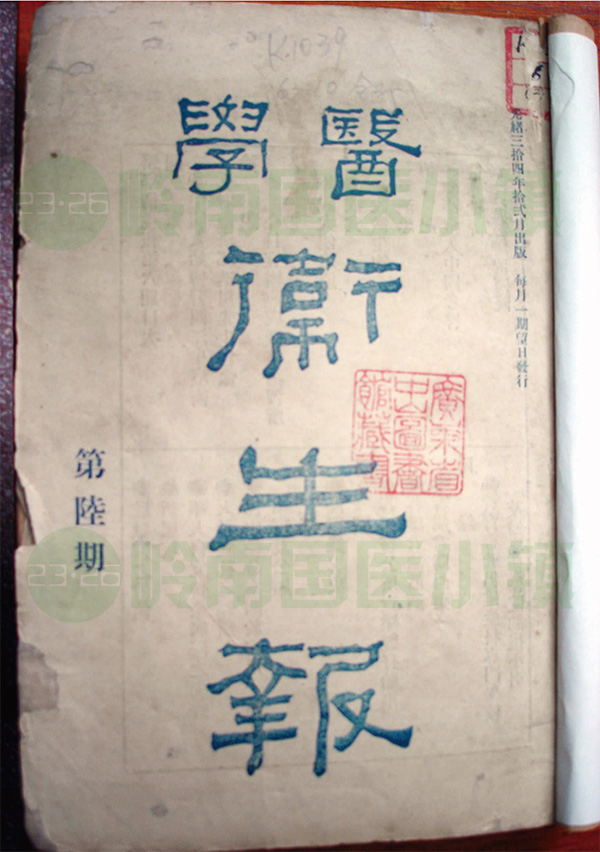 K.1039
光緒三拾四年拾弍月出版 每月一期望日發行
醫學
衛
生
報
第陸期
廣東省
中山圖書
館藏書
23·26 岭南国医小镇
23·26 岭南国医小镇